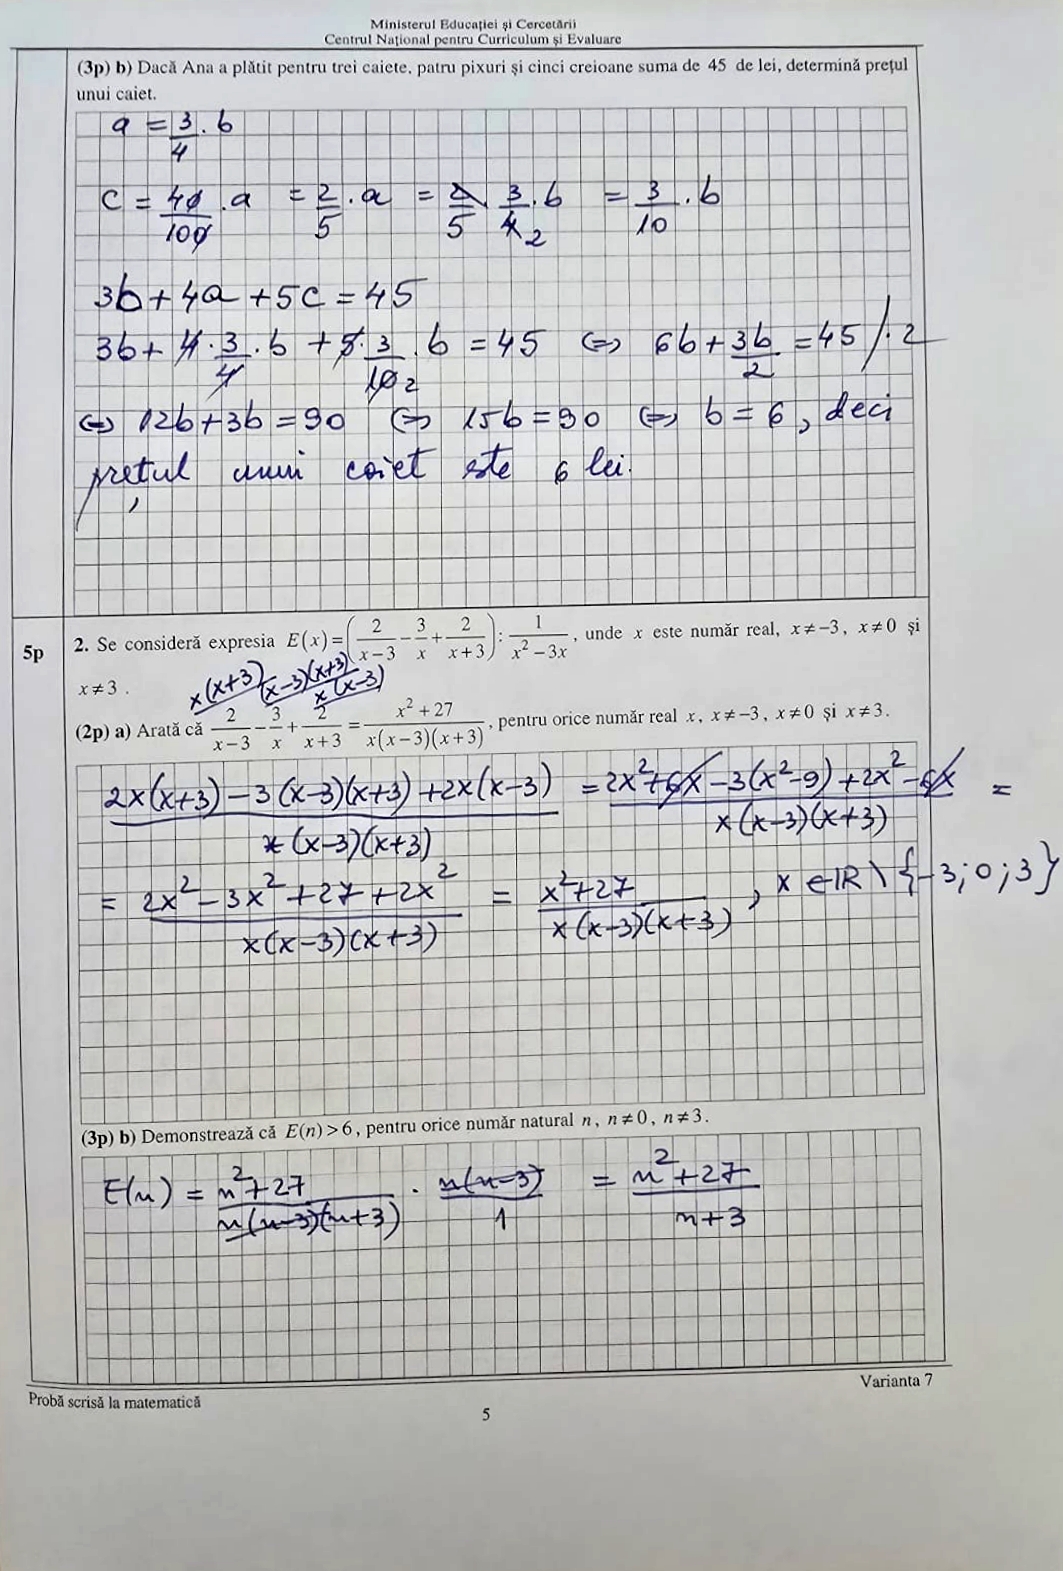 Ministerul Educației și Cercetării
Centrul Național pentru Curriculum și Evaluare
(3p) b) Dacă Ana a plătit pentru trei caiete, patru pixuri și cinci creioane suma de 45 de lei, determină prețul
unui caiet.
a = 3/4 · b
c = 40/100 · a = 2/5 · a = 2/5 · 3/4 2 · b = 3/10 · b
3b + 4a + 5c = 45
3b + 4 · 3/4 · b + 5 · 3/10 2 · b = 45 ⇔ 6b + 3b/2 = 45 / · 2
⇔ 12b + 3b = 90 ⇔ 15b = 90 ⇔ b = 6, deci
prețul unui caiet este 6 lei.
5p
2. Se consideră expresia E(x) = (2/(x−3) − 3/x + 2/(x+3)) : 1/(x² − 3x), unde x este număr real, x ≠ −3, x ≠ 0 și
x ≠ 3 .
x(x+3) (x−3)(x+3) x(x−3)
(2p) a) Arată că 2/(x−3) − 3/x + 2/(x+3) = (x² + 27)/(x(x−3)(x+3)), pentru orice număr real x, x ≠ −3, x ≠ 0 și x ≠ 3.
(2x(x+3) − 3(x−3)(x+3) + 2x(x−3))/(x(x−3)(x+3)) = (2x² + 6x − 3(x²−9) + 2x² − 6x)/(x(x−3)(x+3)) =
= (2x² − 3x² + 27 + 2x²)/(x(x−3)(x+3)) = (x² + 27)/(x(x−3)(x+3)), x ∈ ℝ \ {−3; 0; 3}
(3p) b) Demonstrează că E(n) > 6, pentru orice număr natural n, n ≠ 0, n ≠ 3.
E(n) = (n² + 27)/(n(n−3)(n+3)) · n(n−3)/1 = (n² + 27)/(n+3)
Probă scrisă la matematică
Varianta 7
5